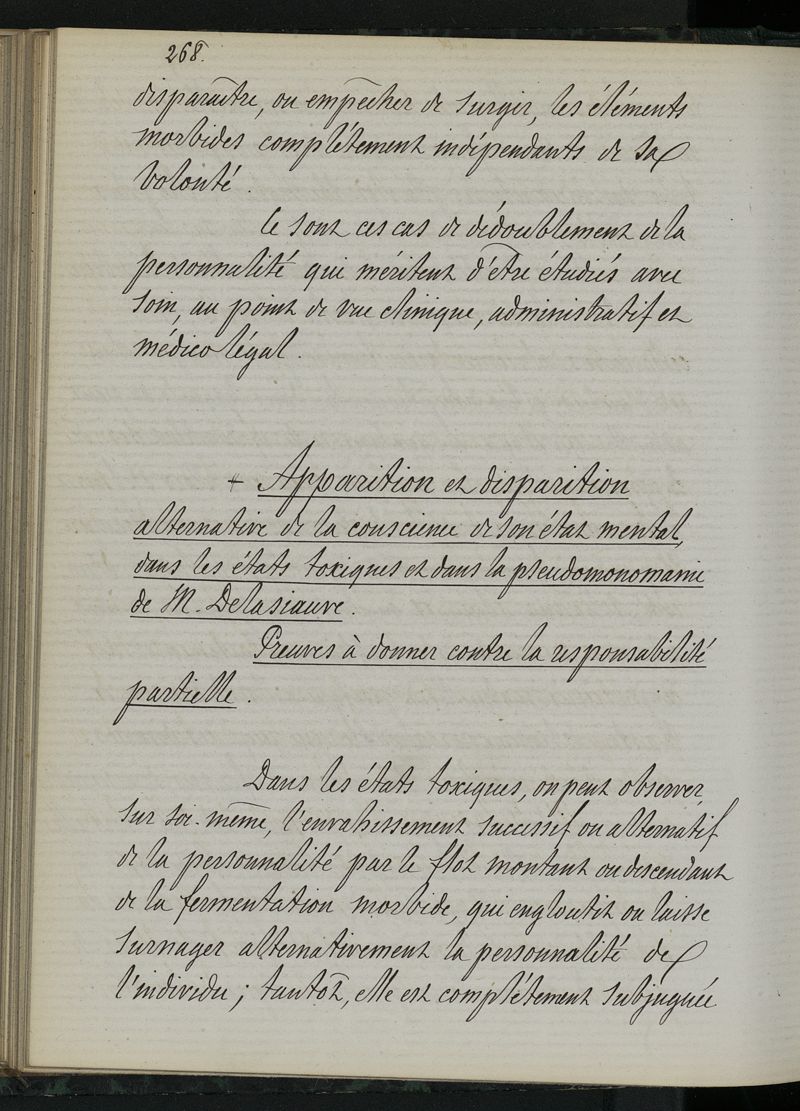 268.
disparaître, ou empêcher de surgir, les éléments
morbides complétement indépendants de sa
volonté.
Ce sont ces cas de dédoublement de la
personnalité qui méritent d'être étudiés avec
soin, au point de vue clinique, administratif et
médico légal.
+ Apparition et disparition
alternative de la conscience de son état mental,
dans les états toxiques et dans la pseudomonomanie
de M. Delasiauve.
Preuves à donner contre la responsabilité
partielle.
Dans les états toxiques, on peut observer,
sur soi-même, l'envahissement successif ou alternatif
de la personnalité par le flot montant ou descendant
de la fermentation morbide, qui engloutit ou laisse
surnager alternativement la personnalité de
l'individu; tantôt, elle est complétement subjuguée